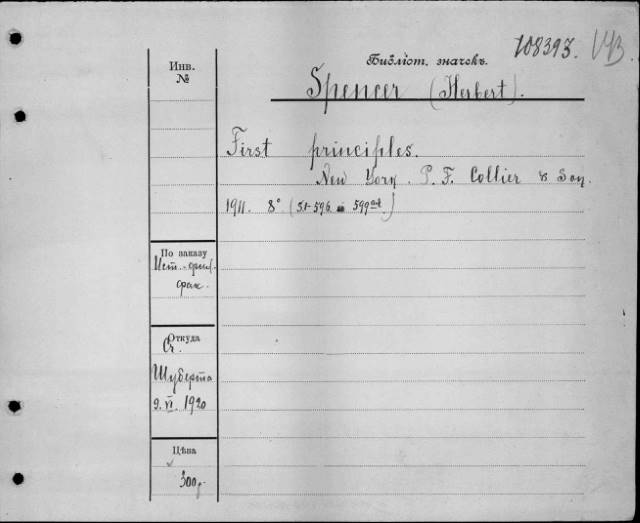 108393.
Библіот. значекъ.
Spencer (Herbert).
Инв.
№
First principles.
New York. P. F. Collier & Son.
1911. 8° (51-596 599
По заказу
Ист.-фил.
фак.
Откуда
Сч.
Шуберта
9. VI. 1920
Цѣна
300 р